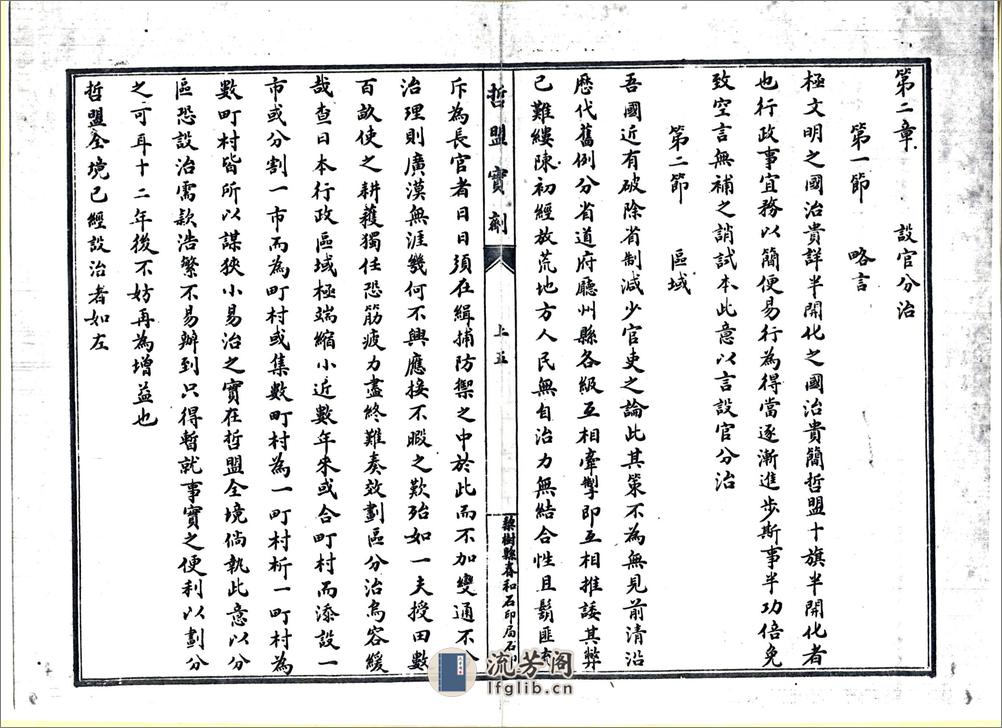 第二章 設官分治
第一節 略言
極文明之國治貴詳半開化之國治貴簡哲盟十旗半開化者
也行政事宜務以簡便易行為得當逐漸進步斯事半功倍免
致空言無補之誚試本此意以言設官分治
第二節 區域
吾國近有破除省制減少官吏之論此其策不為無見前清沿
歷代舊例分省道府廳州縣各級互相牽掣即互相推諉其弊
已難縷陳初經放荒地方人民無自治力無結合性且鬍匪
哲盟實劑
上五
梨樹縣春和石印局石
斥為長官者日日須在緝捕防禦之中於此而不加變通不
治理則廣漠無涯幾何不興應接不暇之歎殆如一夫授田數
百畝使之耕穫獨任恐筋疲力盡終難奏效劃區分治烏容緩
哉查日本行政區域極端縮小近數年來或合町村而添設一
市或分割一市而為町村或集數町村為一町村析一町村為
數町村皆所以謀狹小易治之實在哲盟全境倘執此意以分
區恐設治需款浩繁不易辦到只得暫就事實之便利以劃分
之可耳十二年後不妨再為增益也
哲盟全境已經設治者如左
流芳阁
lfglib.cn